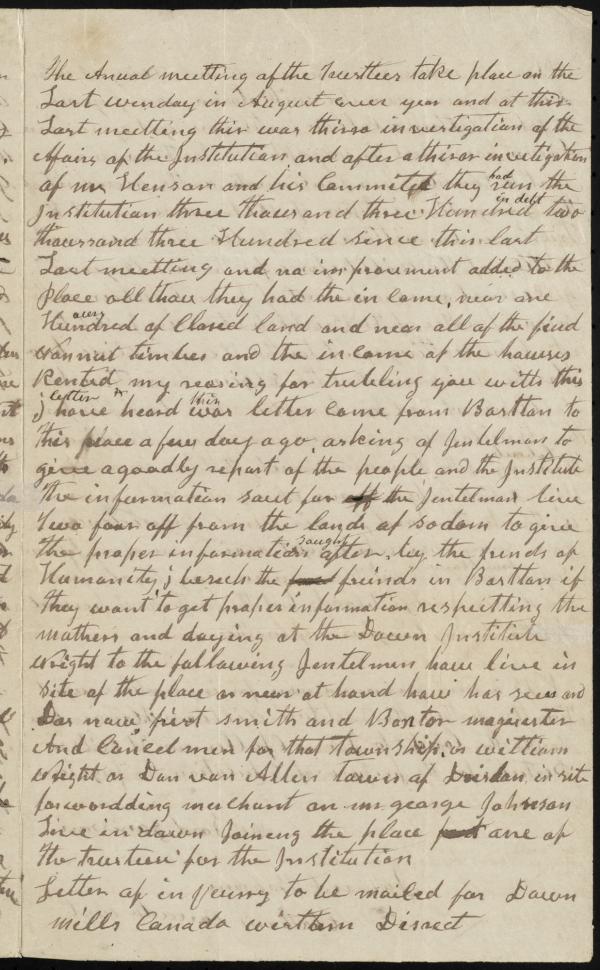 The Anual meetting of the trustees take place on the
Last wenday in August ever year and at this
Last meetting thir was thiroo investigation of the
Affairs of the Institution and after a thiror invetigation
of mr Henson and his Committed they had run the
Institution three thousand three Hundred in debt two
thoussand three Hundred since this last
Last meetting and no improvement added to the
place all thou they had the in come, near one
Hundred acers of Clared land and near all of the find
wannut timbes and the in come of the houses
Rented my reasing for trubling you with this
letter is
j have heard thir was letter came from Bostton to
this place a few day ago asking of Jentelman to
give a goodly report of the people and the Institute
the information saut for the Jentelman live
two four off from the lands of sodom to give
the proper information saught after, by the frends of
Humanity j beseeh the friends in Bostton if
they want to get proper information respeitting the
mathers and doying at the Dawn Institute
wright to the following Jentelmen how live in
site of the place or near at hand how has seen and
Dos now first smith and Boxtor magister
And Councel men for that township, or william
wright or Dan van Allen town of in site
forwordding merchant or mr george Johnson
Live in dawn Joineng the place one of
the trusteer for the Institution
Letter of in Quirry to be mailed for Dawn
mills Canada western Direct